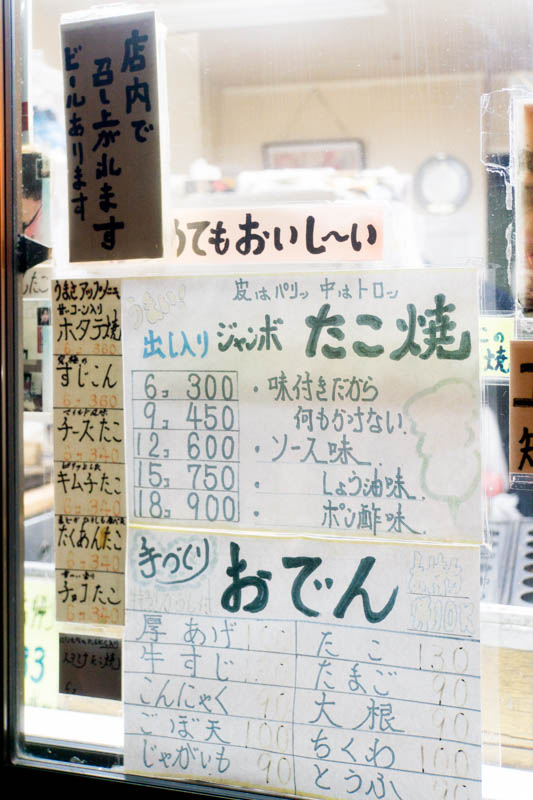 店内で
召し上がれます
ビールあります
てもおいし〜い
うまい！
皮はパリッ 中はトロッ
出し入り ジャンボ たこ焼
6コ 300
9コ 450
12コ 600
15コ 750
18コ 900
・味付きだから
何もかけない
・ソース味
しょう油味
ポン酢味
ホタテ焼
6コ 360
すじこん
6コ 360
チーズたこ
6コ 340
キムチたこ
6コ 340
たくあんたこ
6コ 340
チョコたこ
6コ 340
手づくり
おでん
厚あげ
牛すじ
こんにゃく 90
ごぼ天 100
じゃがいも 90
たこ 130
たまご 90
大根 90
ちくわ 100
とうふ 90